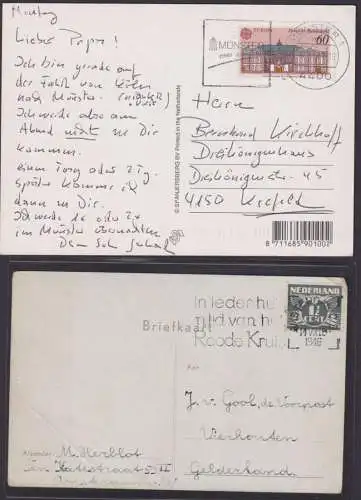 Montag
Lieber Papa!
Ich bin gerade auf
der Fahrt von Köln
nach Münster.
Ich werde also am
Abend nicht zu Dir
kommen.
einen Tag oder 2 Tg.
später komme ich
dann zu Dir.
Ich werde 1x oder 2x
in Münster übernachten
Dein Sohn
© SPANJERSBERG BV Printed in the Netherlands
MÜNSTER
EUROPA
Deutsche Bundespost
60
4400
Herrn
Bernhard Kirchhoff
Dreikönigenhaus
Dreikönigenstr. 45
4150 Krefeld
8 711685 901002
Briefkaart
In ieder hu
lid van he
Roode Kruis
NEDERLAND
1½
CENT
1946
Aan
J. v. Gool, de Voorpost
Vierhouten
Gelderland.
Afzender: M. Herblot